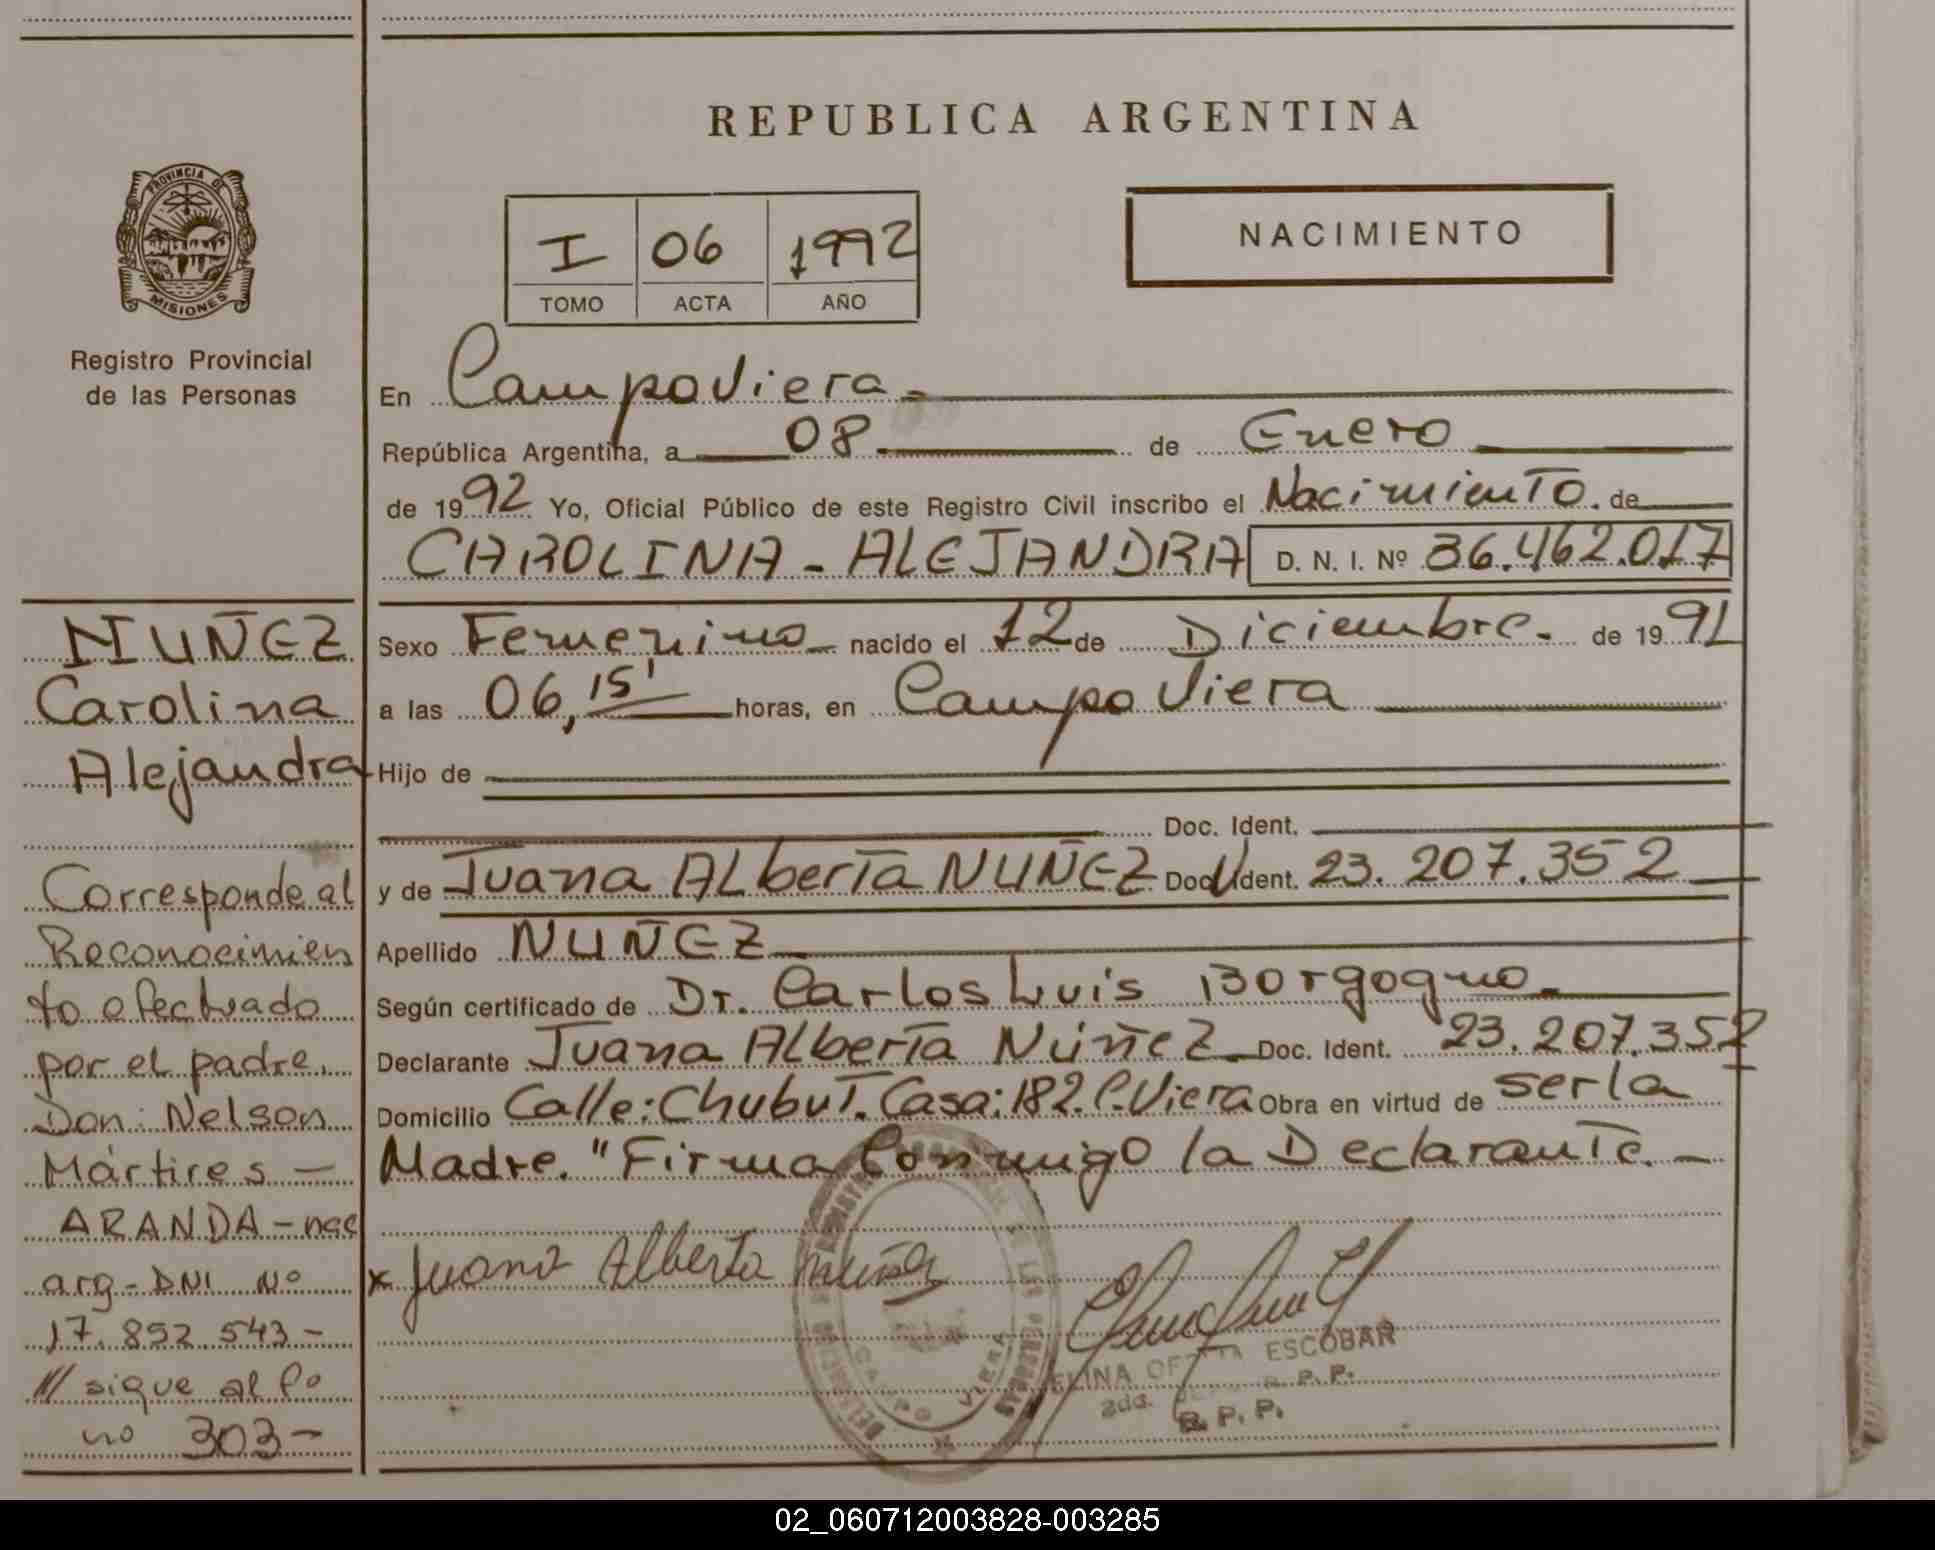 REPUBLICA ARGENTINA
PROVINCIA DE
MISIONES
Registro Provincial
de las Personas
I 06 1992
TOMO ACTA AÑO
NACIMIENTO
En Campo Viera
República Argentina, a 08 de Enero
de 1992 Yo, Oficial Público de este Registro Civil inscribo el Nacimiento de
CAROLINA - ALEJANDRA D. N. I. Nº 36.462.017
Sexo Femenino nacido el 12 de Diciembre. de 1991
a las 06,15' horas, en Campo Viera
Hijo de
Doc. Ident.
y de Juana ALberta NUÑEZ Doc. Ident. 23.207.352
Apellido NUÑEZ
Según certificado de Dr. Carlos Luis Borgogno
Declarante Juana ALberta Núñez Doc. Ident. 23.207.352
Domicilio Calle: Chubut. Casa: 182. C. Viera Obra en virtud de ser la
Madre. "Firma Conmigo la Declarante. -
x Juana Alberta Nuñez
ESCOBAR
R. P. P.
R. P. P.
CAMPO VIERA
NUÑEZ
Carolina
Alejandra
Corresponde al
Reconocimien
to efectuado
por el padre.
Don: Nelson
Mártires -
ARANDA - nac
arg - DNI Nº
17.852.543 -
/// sigue al fo
no 303 -
02_060712003828-003285